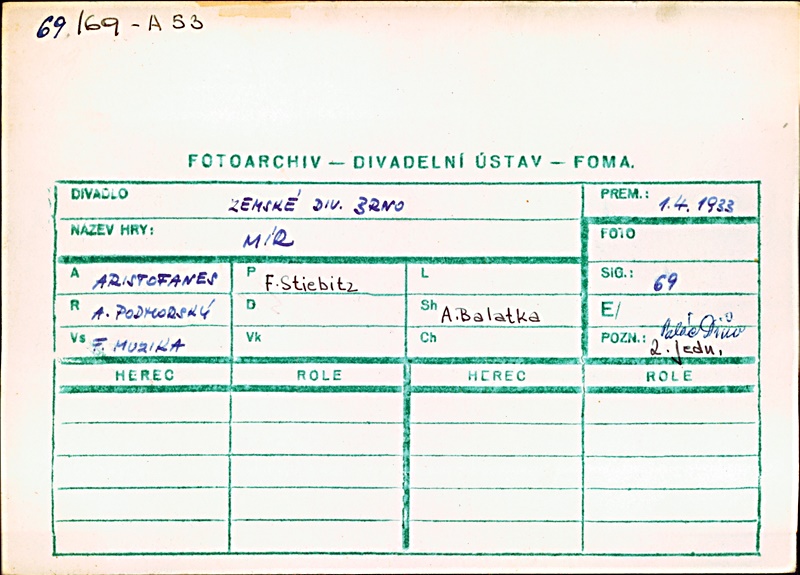 69/69 - A 53
FOTOARCHIV — DIVADELNÍ ÚSTAV — FOMA.
DIVADLO ZEMSKÉ DIV. BRNO PREM.: 1.4. 1933
NÁZEV HRY: MÍR FOTO
A ARISTOFANES P F. Stiebitz L SIG.: 69
R A. PODHORSKÝ D Sh A. Balatka E/
Vs F. MUZIKA Vk Ch POZN.: Palác Dřův
2. jedn.
HEREC ROLE HEREC ROLE